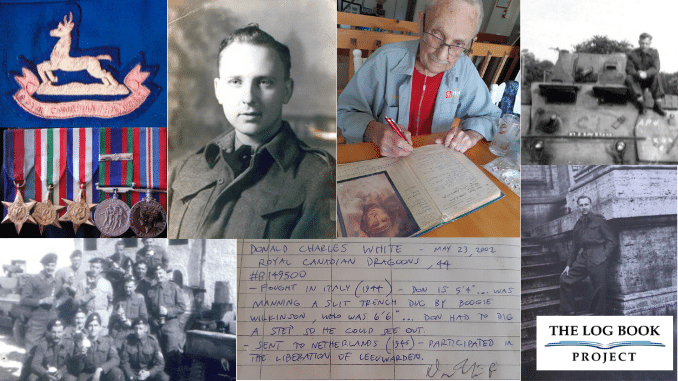 ROYAL CANADIAN DRAGOONS
DONALD CHARLES WHITE - MAY 23, 2002
ROYAL CANADIAN DRAGOONS, 44
#B149500
- FOUGHT IN ITALY (1944) - DON IS 5'4"... WAS
MANNING A SLIT TRENCH DUG BY BOOGIE
WILKINSON, WHO WAS 6'6"... DON HAD TO DIG
A STEP SO HE COULD SEE OUT.
- SENT TO NETHERLANDS (1945) - PARTICIPATED IN
THE LIBERATION OF LEEUWARDEN.
THE LOG BOOK
PROJECT